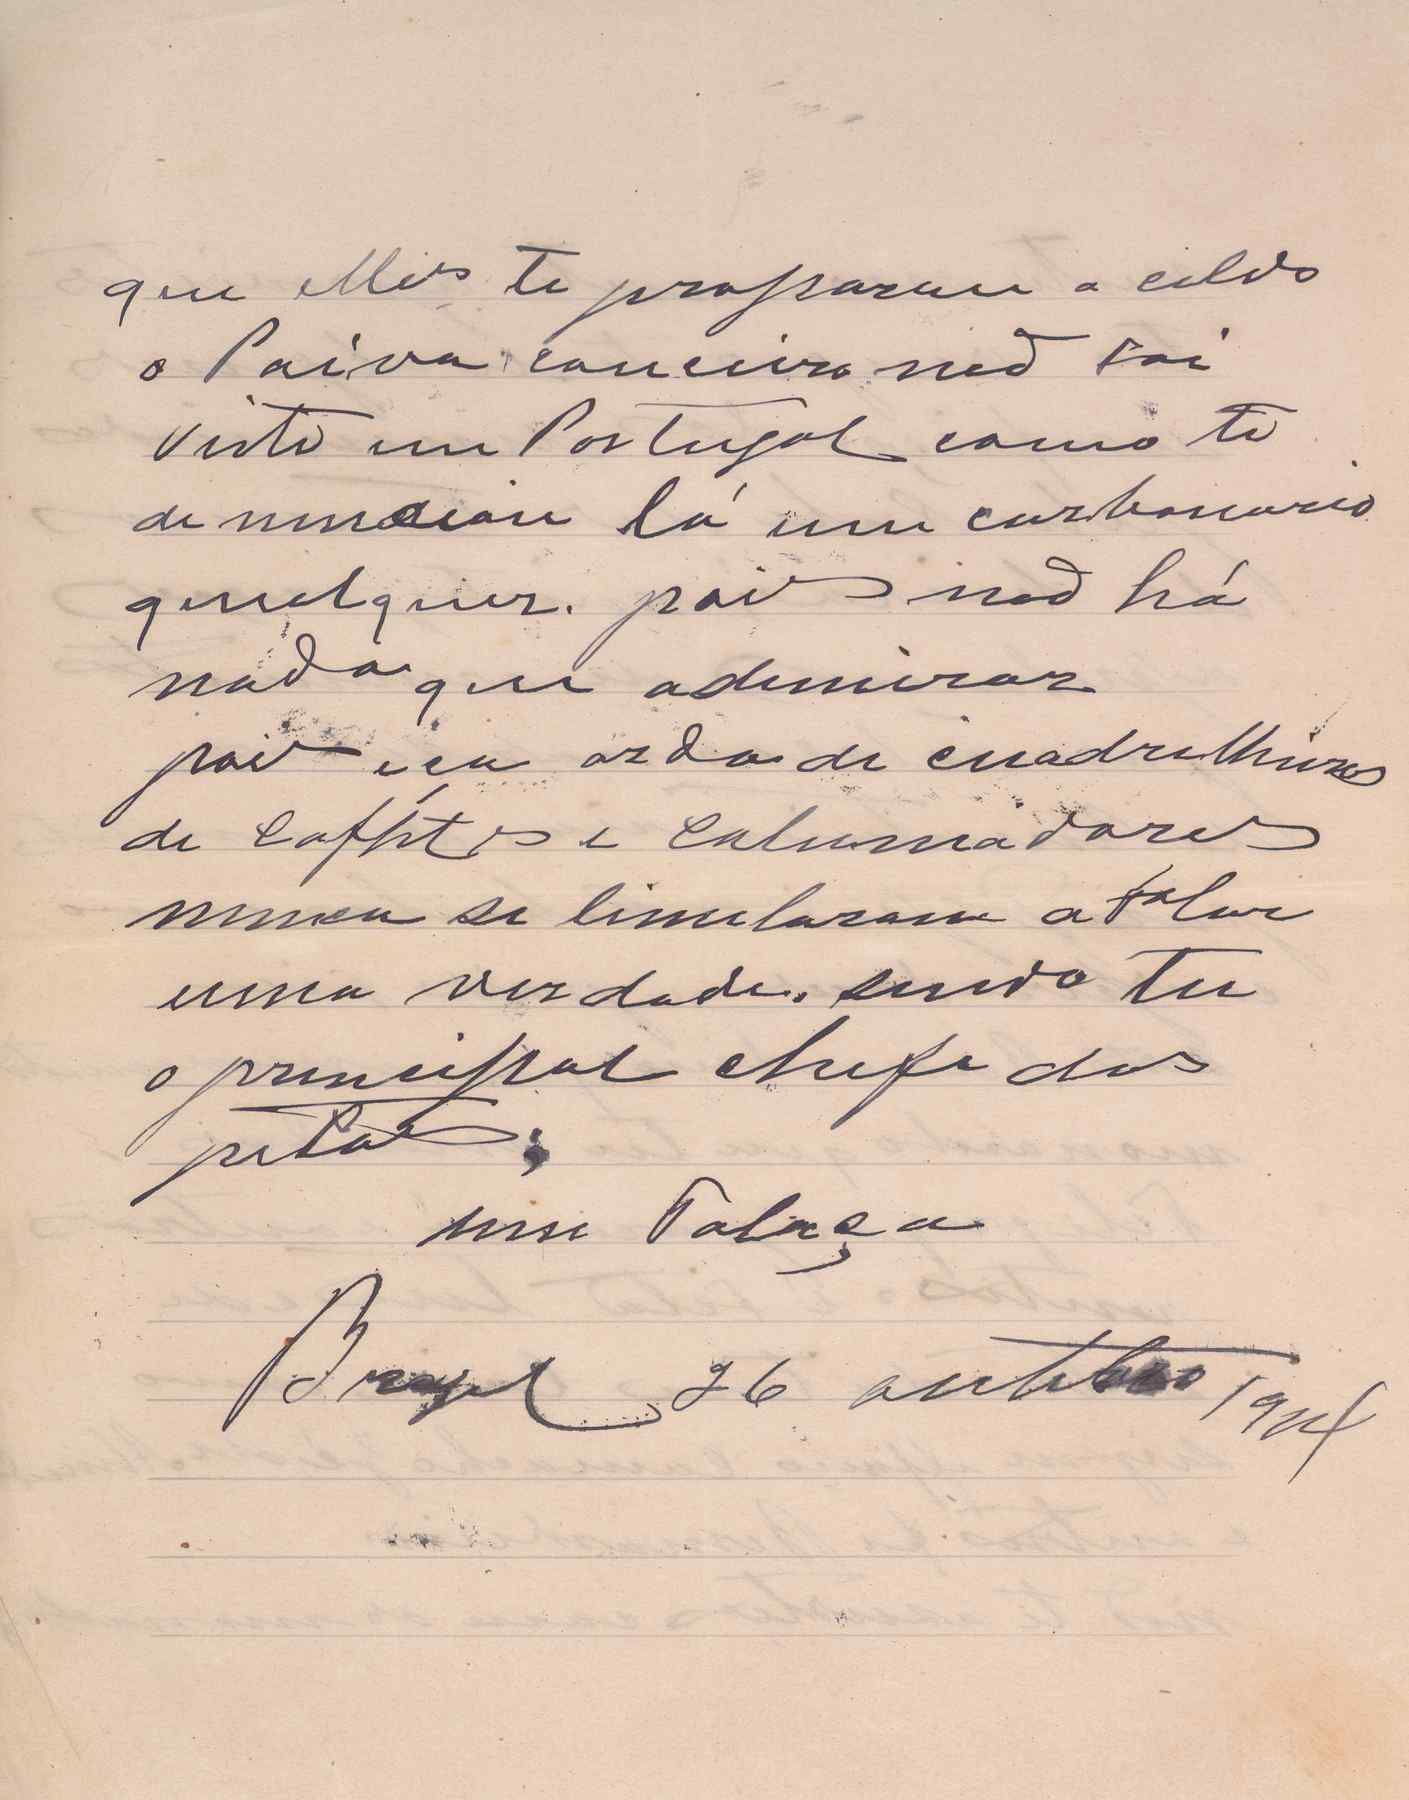 que elles te preparam a cilds
o Paiva couceiro não foi
visto em Portugal como te
denunciou lá um carbonario
qualquer. pois não há
nada que adimirar
pois eça orda de cuadrilheiros
de e calumiadores
nunca se limitaram a falar
uma verdade. sendo tu
o principal chefe dos
petas;
um Talaça
Brazil 26 outubro 1914